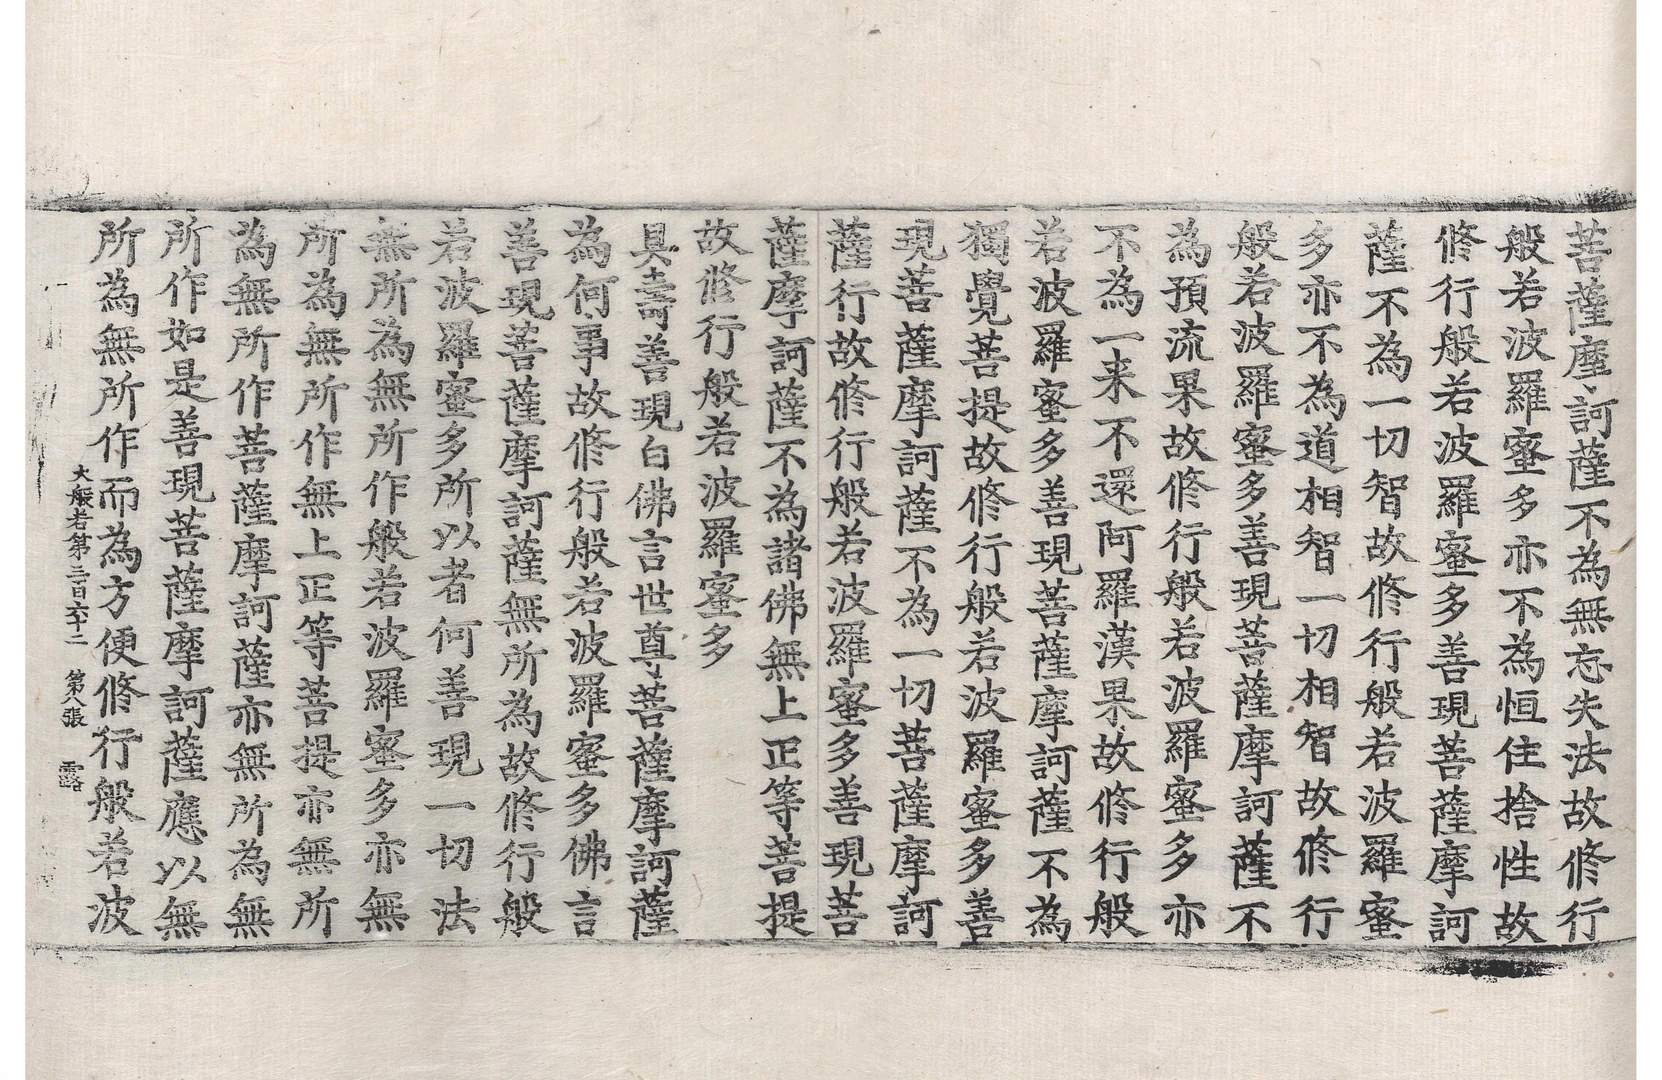 菩薩摩訶薩不為無忘失法故修行
般若波羅蜜多亦不為恒住捨性故
修行般若波羅蜜多善現菩薩摩訶
薩不為一切智故修行般若波羅蜜
多亦不為道相智一切相智故修行
般若波羅蜜多善現菩薩摩訶薩不
為預流果故修行般若波羅蜜多亦
不為一来不還阿羅漢果故修行般
若波羅蜜多善現菩薩摩訶薩不為
獨覺菩提故修行般若波羅蜜多善
現菩薩摩訶薩不為一切菩薩摩訶
薩行故修行般若波羅蜜多善現菩
薩摩訶薩不為諸佛無上正等菩提
故修行般若波羅蜜多
具壽善現白佛言世尊菩薩摩訶薩
為何事故修行般若波羅蜜多佛言
善現菩薩摩訶薩無所為故修行般
若波羅蜜多所以者何善現一切法
無所為無所作般若波羅蜜多亦無
所為無所作無上正等菩提亦無所
為無所作菩薩摩訶薩亦無所為無
所作如是善現菩薩摩訶薩應以無
所為無所作而為方便修行般若波
大般若第三百六十二 第八張 露